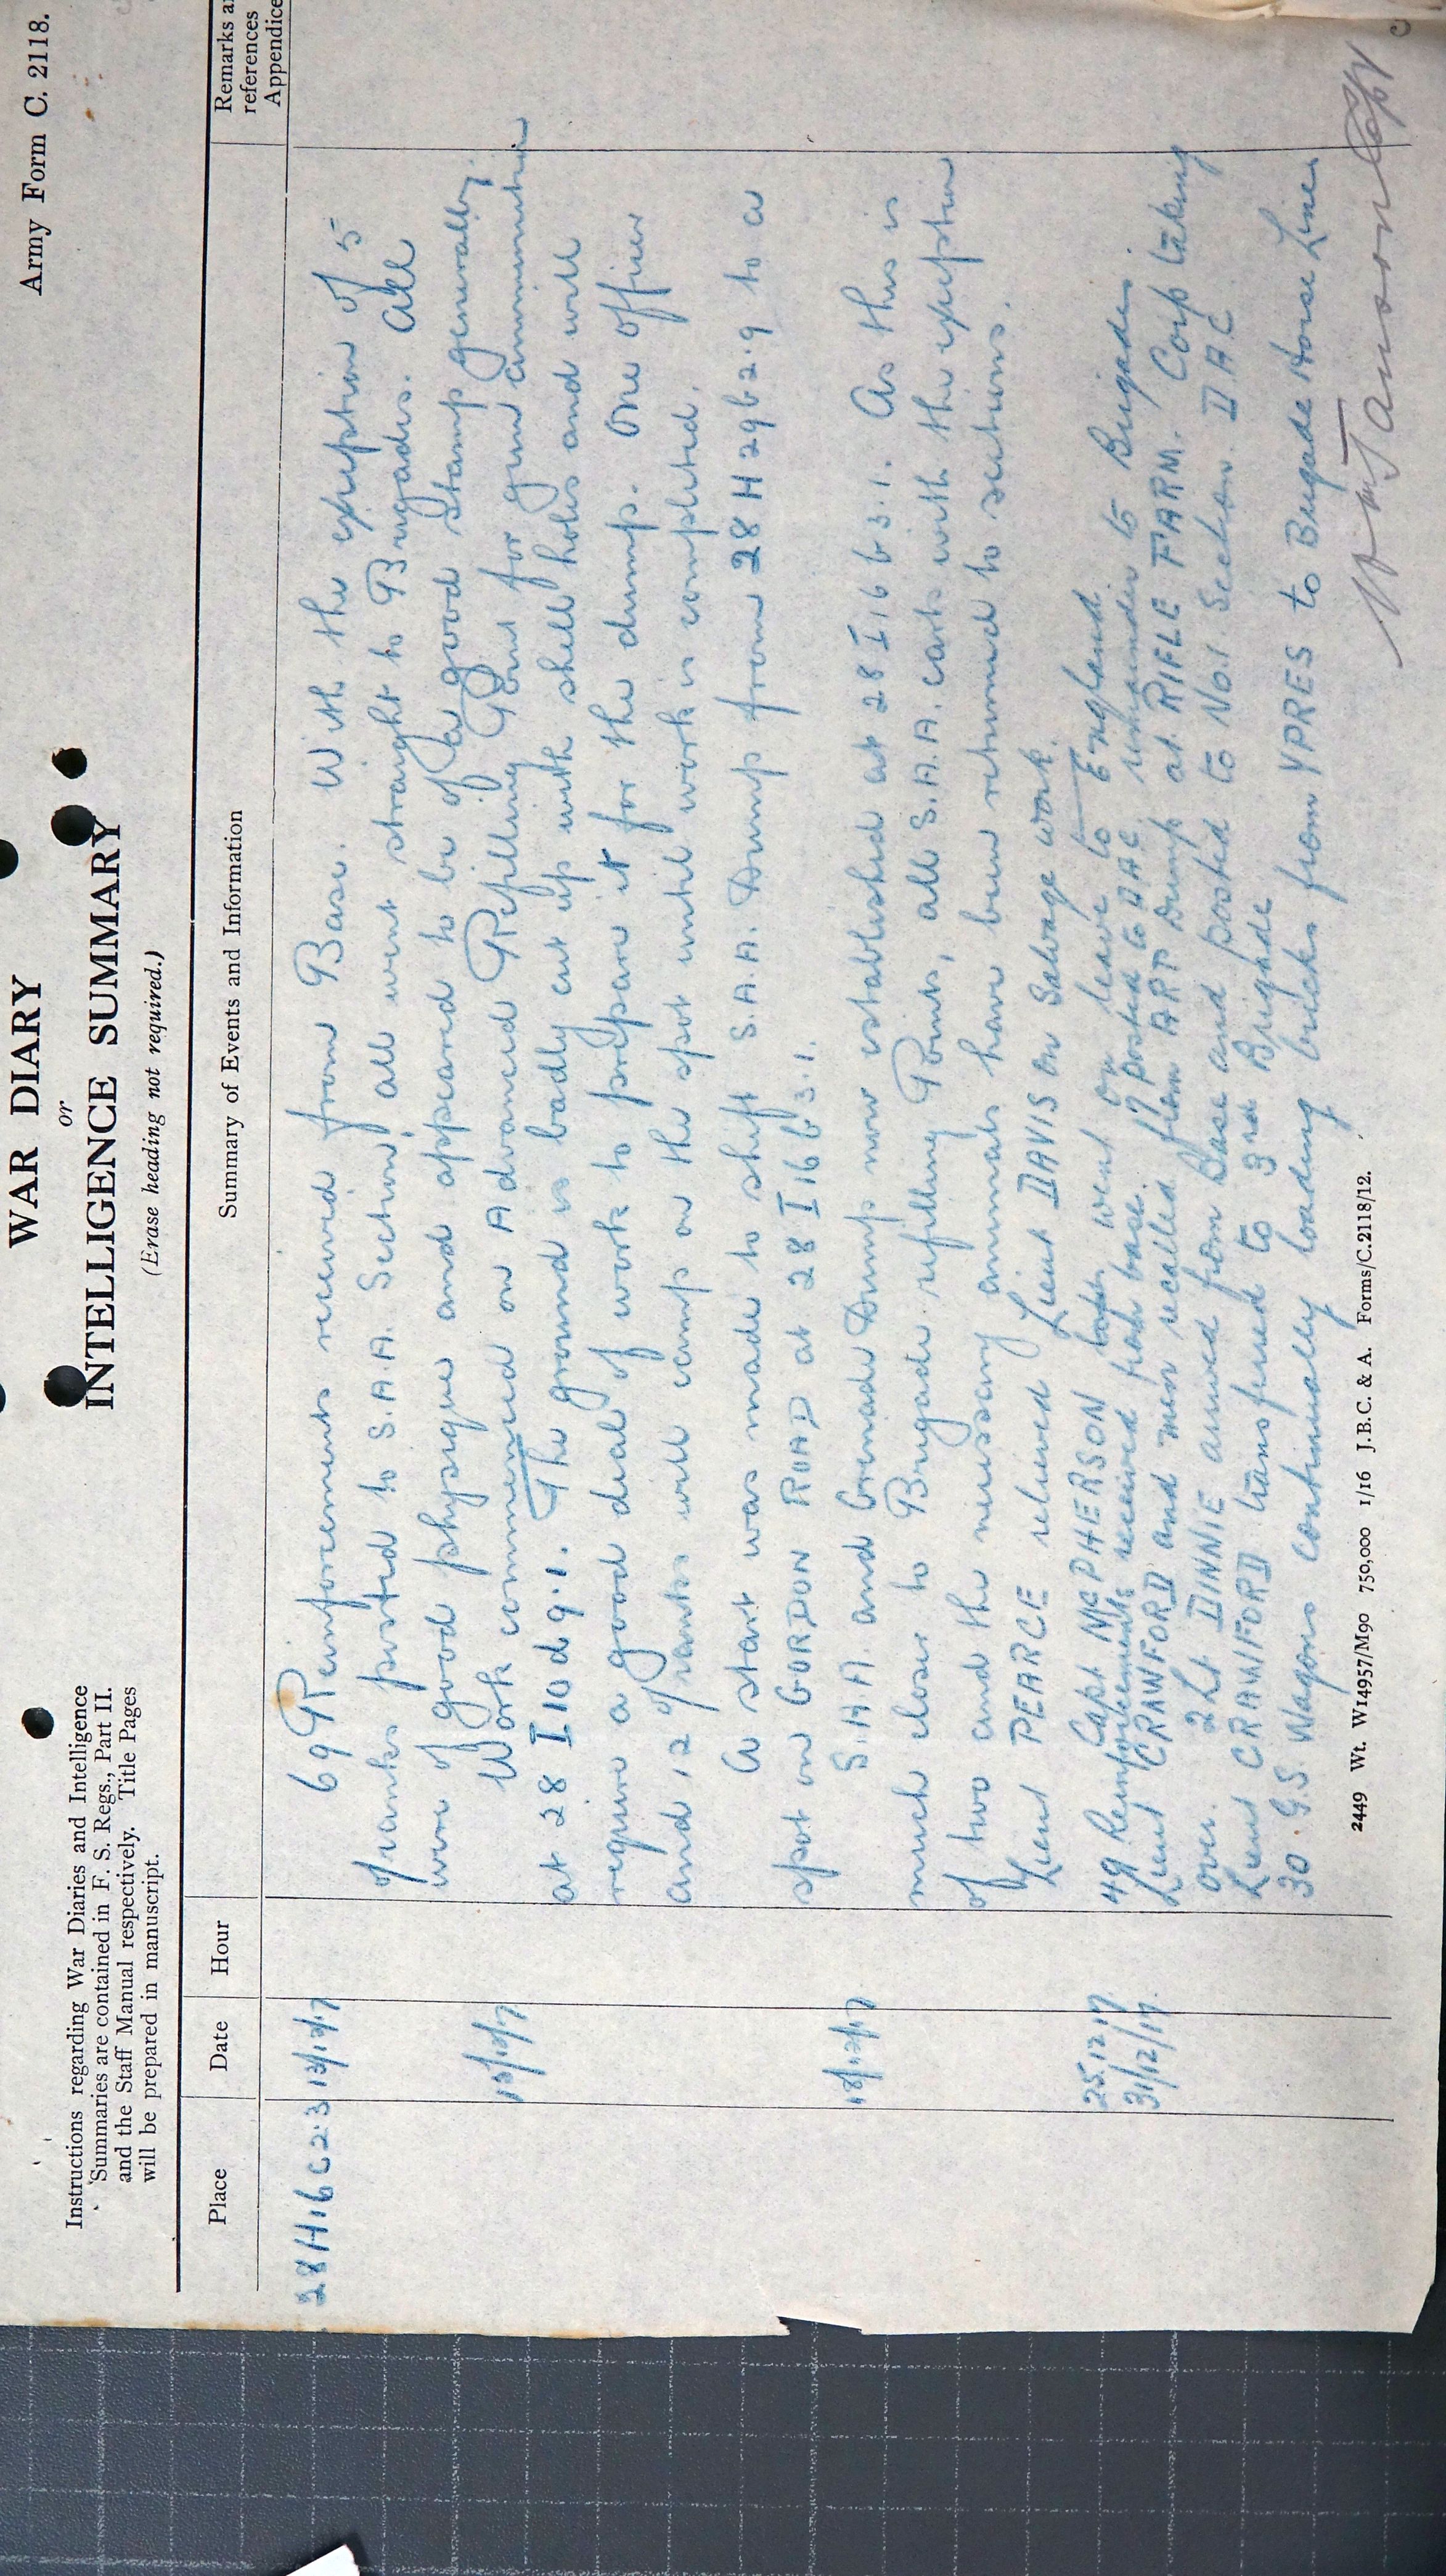 Army Form C. 2118.
WAR DIARY
or
INTELLIGENCE SUMMARY
(Erase heading not required.)
Instructions regarding War Diaries and Intelligence
Summaries are contained in F. S. Regs., Part II.
and the Staff Manual respectively. Title Pages
will be prepared in manuscript.
Place Date Hour Summary of Events and Information Remarks and
references
Appendice
28 H 16 c 2.3 69 Reinforcements received from Base. With the exception of 5
O/ranks posted to S.A.A. Section all went straight to Brigades. All
were of good physique and appeared to be of a good stamp generally.
Work commenced on Advanced Refilling Point for gun ammunition
at 28 I 10 d 9.1. The ground is badly cut up with shell holes and will
require a good deal of work to prepare it for the dump. One Officer
and 12 O/ranks will camp on the spot until work is completed.
A start was made to shift S.A.A. Dump from 28 H 29 b 2.9 to a
spot on GORDON ROAD at 28 I 16 b 3.1.
18/12/17 S.A.A. and Grenade Dump now established at 28 I 16 b 3.1. As this is
much closer to Brigade refilling Points, all S.A.A. carts with the exception
of two and the necessary animals have been returned to sections.
Lieut PEARCE relieved Lieut DAVIS on Salvage work.
25.12.17 Capt McPHERSON went on leave to England.
49 Reinforcements received from base. 9 posted to DAC remainder to Brigades.
31/12/17 Lieut CRAWFORD and men recalled from ARP Dump at RIFLE FARM. Corp taking
over. 2Lt DINNIE arrived from Base and posted to No.1 Section. DAC
Lieut CRAWFORD transferred to 3rd Brigade
30 G.S. Wagons continually loading bricks from YPRES to Brigade Horse Lines
2449 Wt. W14957/M90 750,000 1/16 J.B.C. & A. Forms/C.2118/12.